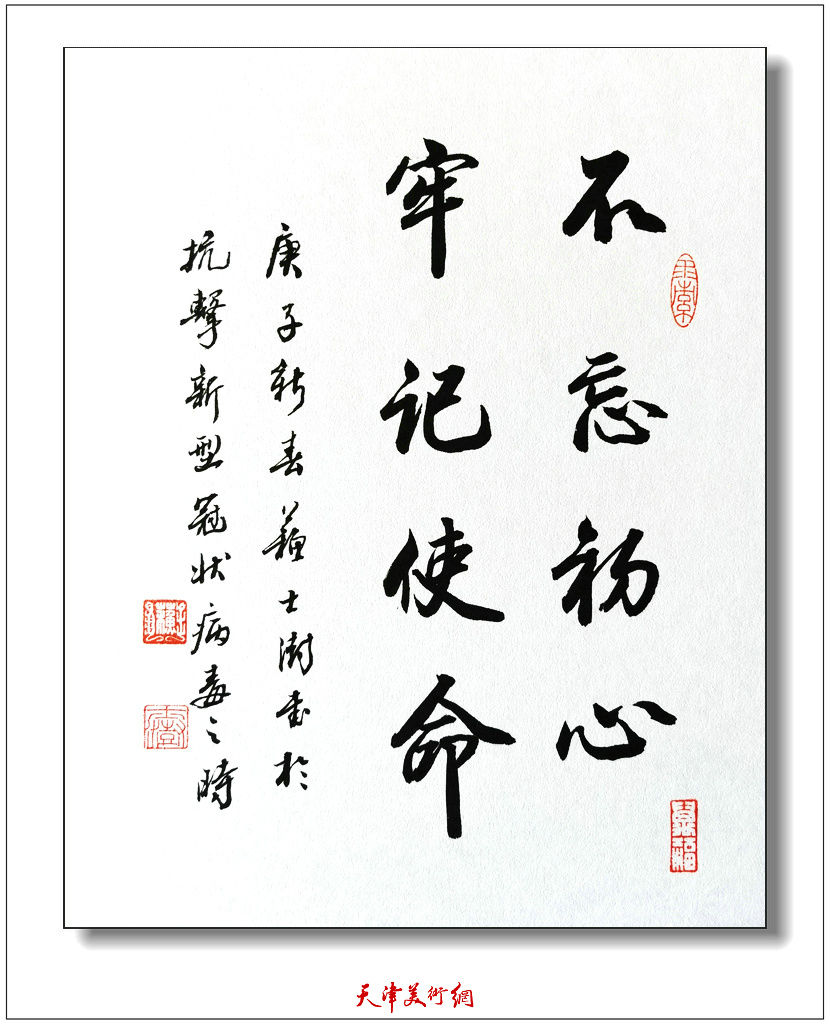 不忘初心
牢记使命
庚子新春苏士澍书於
抗擊新型冠状病毒之時
天津美術網